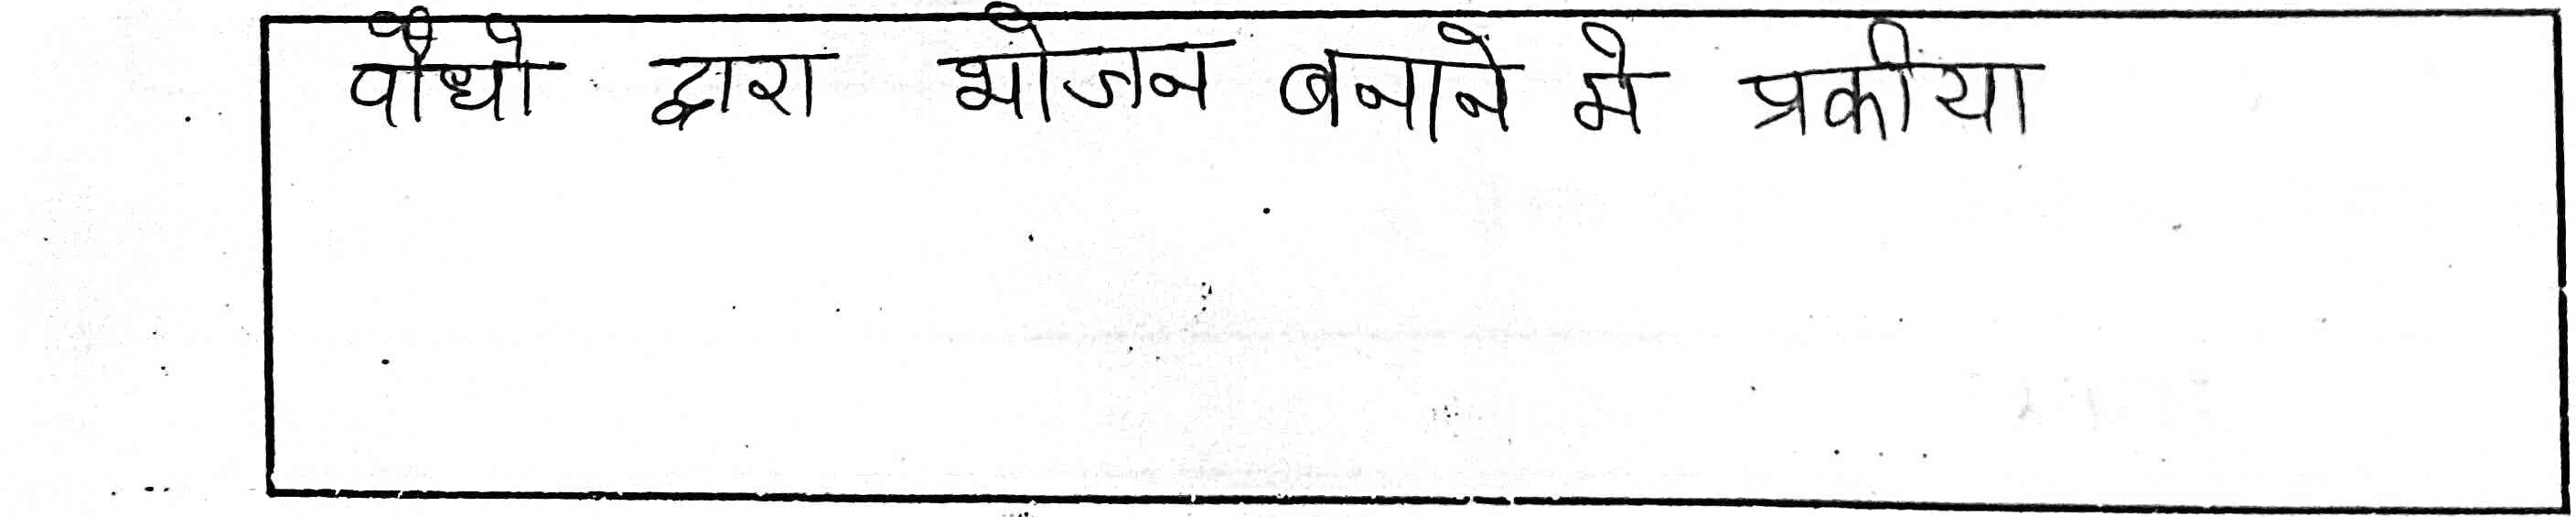 पौधो द्वारा भोजन बनाने मे प्रकीया